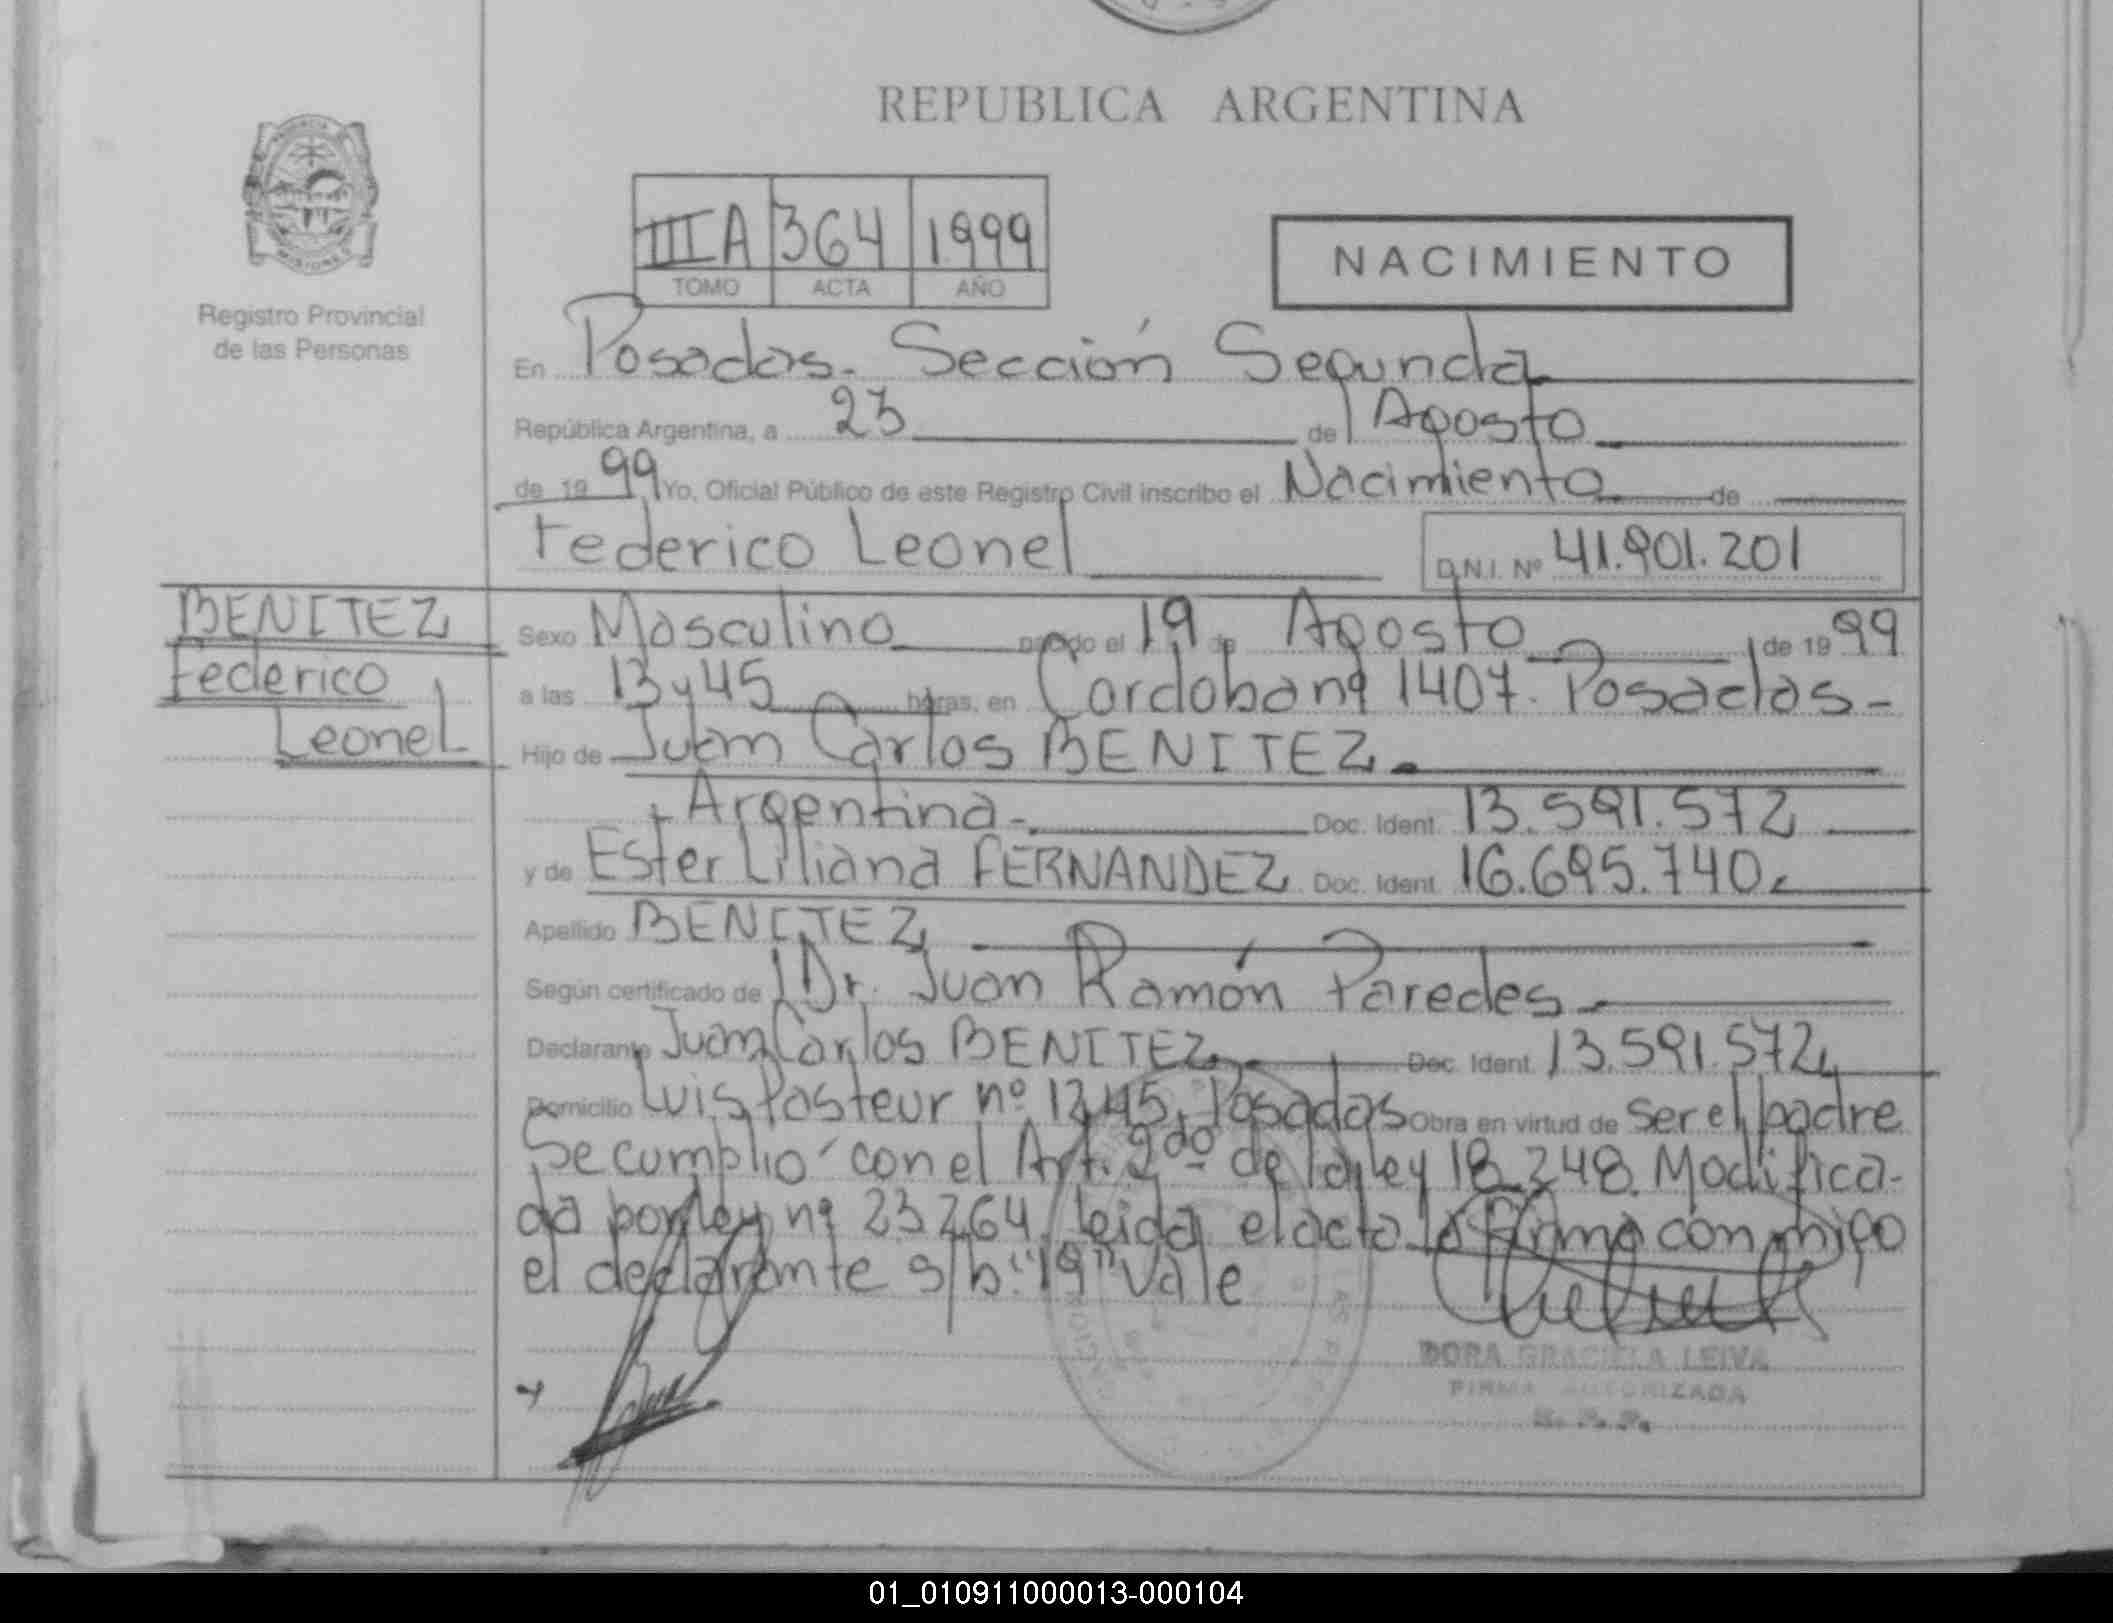 REPUBLICA ARGENTINA
PROVINCIA
MISIONES
Registro Provincial
de las Personas
III A 364 1999
TOMO ACTA AÑO
NACIMIENTO
En Posadas. Sección Segunda
República Argentina, a 23 de Agosto
de 19 99 Yo, Oficial Público de este Registro Civil inscribo el Nacimiento de
Federico Leonel D.N.I. Nº 41.901.201
BENITEZ
Federico
Leonel
Sexo Masculino nacido el 19 de Agosto de 19 99
a las 13 y 45 horas, en Cordobana 1407. Posadas-
Hijo de Juan Carlos BENITEZ.
Argentina- Doc. Ident. 13.591.572
y de Ester Liliana FERNANDEZ Doc. Ident. 16.695.740.
Apellido BENITEZ
Según certificado de Dr. Juan Ramón Paredes
Declarante Juan Carlos BENITEZ Doc. Ident. 13.591.572
Domicilio Luis Pasteur nº 1245. Posadas Obra en virtud de ser el padre
Se cumplió con el Art. 2do de la ley 18.248. Modifica-
da por ley nº 23264. leida el acta la firma conmigo
el declarante s/b: "19" Vale
DORA GRACIELA LEIVA
FIRMA AUTORIZADA
R. P. P.
01_010911000013-000104